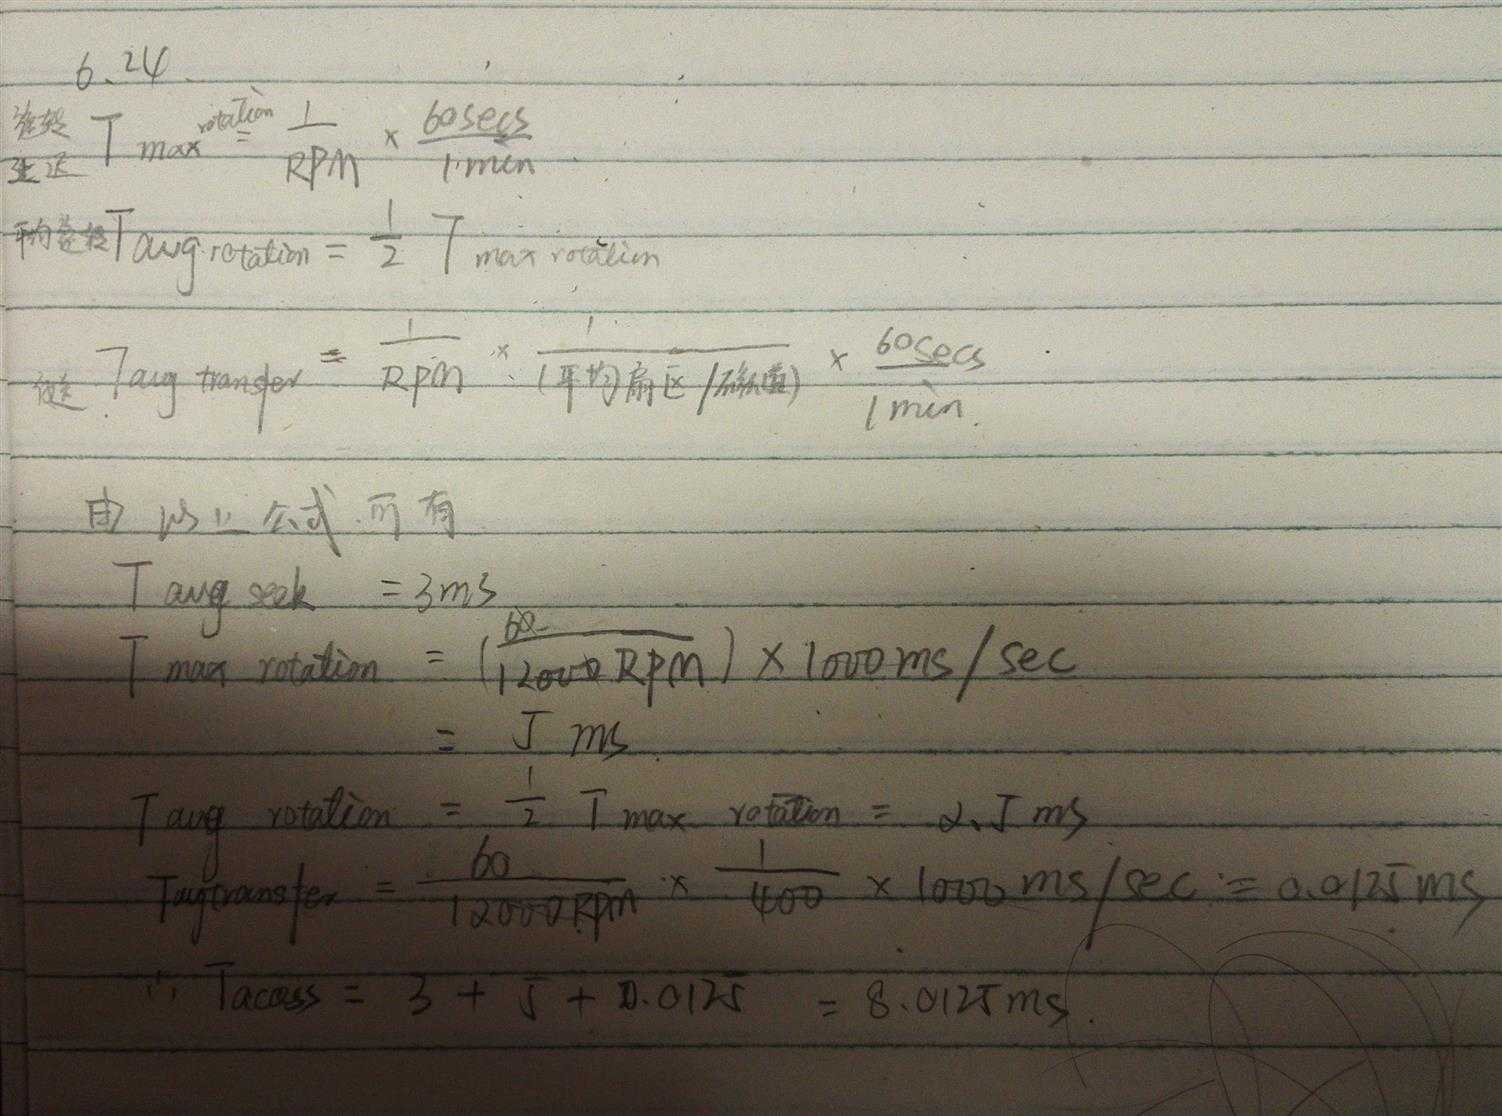 6.24
旋转延迟 T max rotation = 1/RPM × 60secs/1min
平均旋转 T avg rotation = 1/2 T max rotation
T avg transfer = 1/RPM × 1/(平均扇区/磁道) × 60secs/1min
由以上公式可有
T avg seek = 3ms
T max rotation = (60/12000RPM) × 1000ms/sec
= 5ms
T avg rotation = 1/2 T max rotation = 2.5ms
T avg transfer = 60/12000RPM × 1/400 × 1000ms/sec = 0.0125ms
∴ Tacess = 3 + 5 + 0.0125 = 8.0125ms.